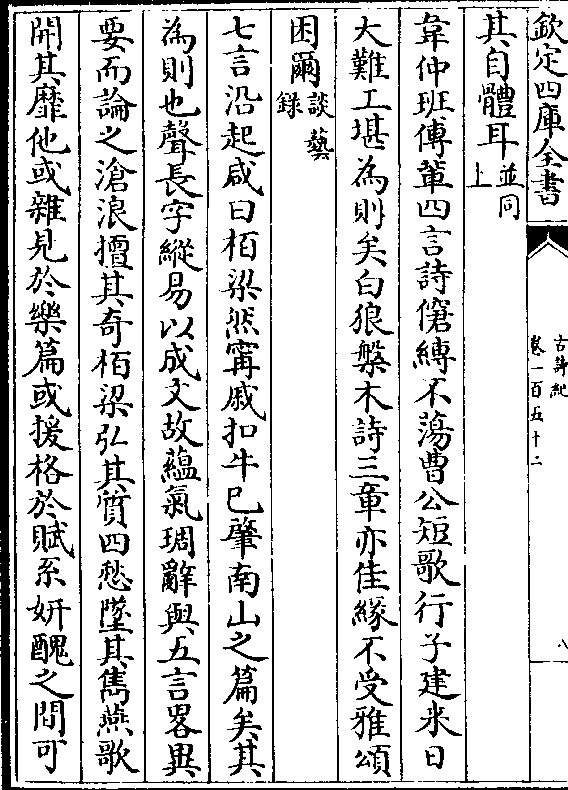 欽定四庫全書
古詩紀
卷一百五十二
八
其自體耳並同
上
韋仲班傅輩四言詩傖縛不蕩曹公短歌行子建來日
大難工堪為則矣白狼槃木詩三章亦佳緣不受雅頌
困爾談藝
錄
七言沿起咸曰栢梁然寗戚扣牛已肇南山之篇矣其
為則也聲長字縱易以成文故蘊氣琱辭與五言畧異
要而論之滄浪擅其奇栢梁弘其質四愁墜其雋燕歌
開其靡他或雜見於樂篇或援格於賦系妍醜之間可